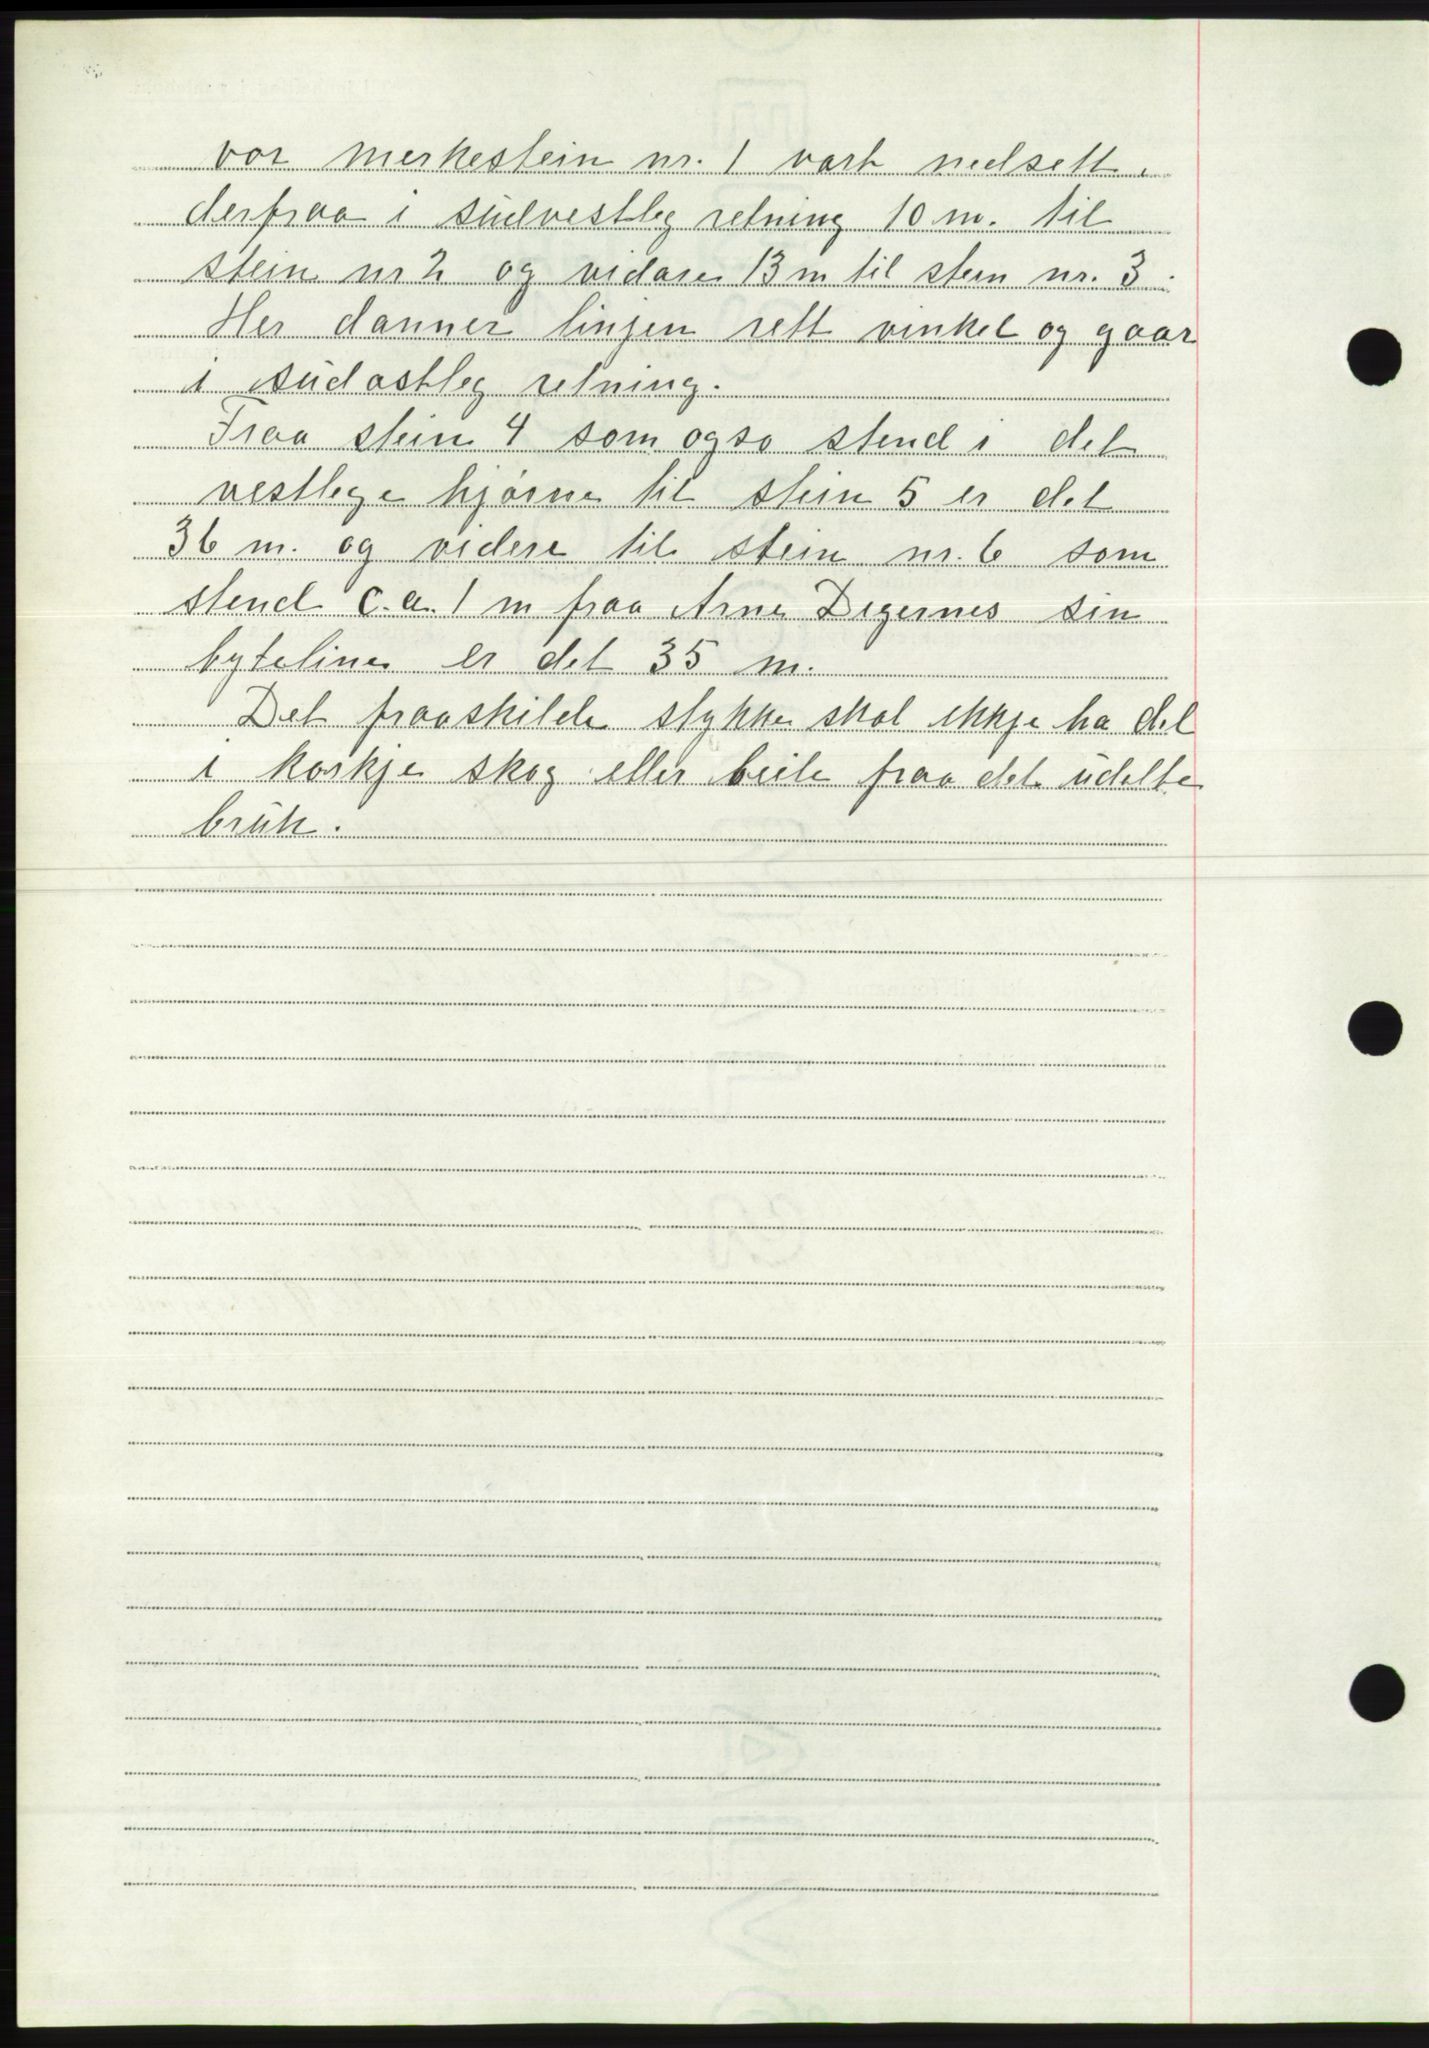 vor merkestein nr. 1 vart nedsett,
derfraa i südvestleg retning 10 m. til
stein nr 2 og vidare 13 m til sten nr. 3.
Her danner linjen rett vinkel og gaar
i südostleg retning.
Fraa stein 4 som ogso stend i det
vestlege hjørne til stein 5 er det
36 m. og videre til stein nr. 6 som
stend c.a. 1 m fraa Arne Degernes sin
byteline er det 35 m.
Det fraaskilde stykke skal ikkje ha del
i korkje skog eller beite fraa det üdelte
brük.